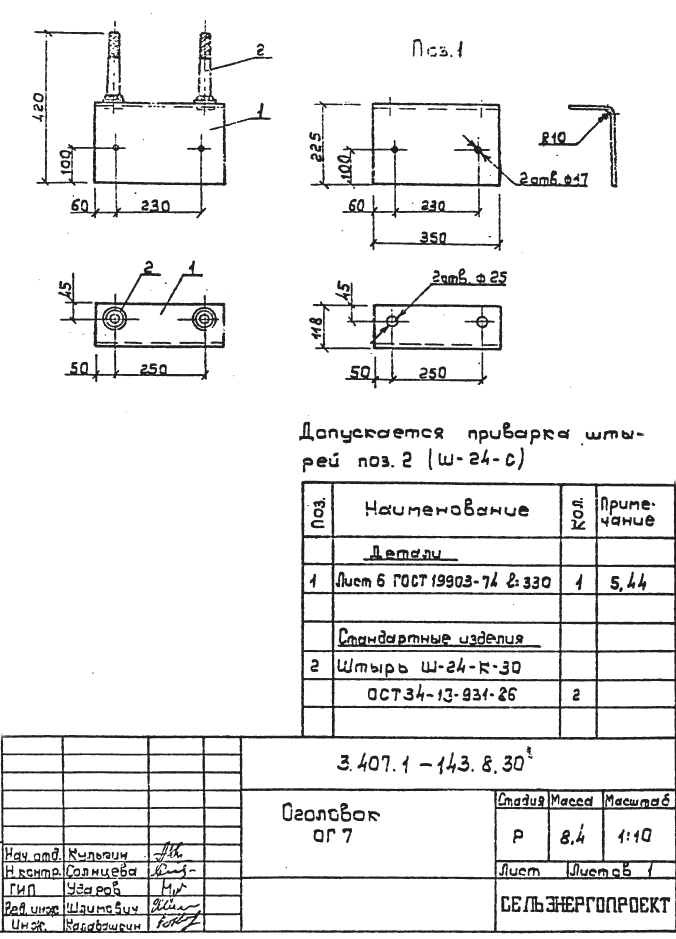 420
100
60
230
2
1
Поз.1
225
100
60
230
350
2 отв. ф17
R10
45
2
1
50
250
45
118
2 отв. ф 25
50
250
Допускается приварка шты-
рей поз. 2 (Ш-24-С)
Поз. Наименование Кол. Приме-
чание
Детали
1 Лист 6 ГОСТ 19903-74 ℓ=330 1 5,44
Стандартные изделия
2 Штырь Ш-24-К-30
ОСТ 34-13-931-86 2
3.407.1 - 143.8.30
Оголовок
ОГ 7
Стадия Масса Масштаб
Р 8,4 1:10
Лист Листов 1
СЕЛЬЭНЕРГОПРОЕКТ
Нач. отд. Кулыгин
Н.контр. Солнцева
ГИП Ударов
Вед. инж. Шлимович
Инж. Калабашкин